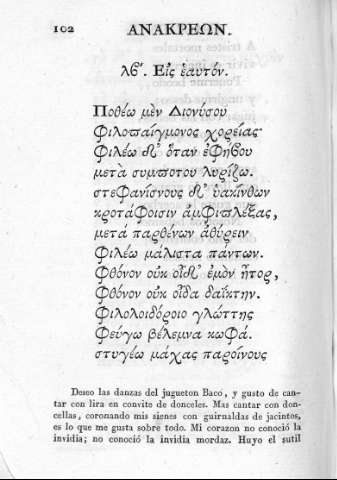 102 ΑΝΑΚΡΕΩΝ.
λθʹ. Εἰς ἑαυτόν.
Ποθέω μὲν Διονύσου
Φιλοπαίγμονος χορείας·
Φιλέω δ' ὅταν ἐφήβου
μετὰ συμπότου λυρίζω.
στεφανίσνους δ' ὑακίνθων
κροτάφοισιν ἀμφιπλέξας,
μετὰ παρθένων ἀθύρειν
Φιλέω μάλιστα πάντων.
Φθόνον οὐκ οἶδ' ἐμὸν ἦτορ,
Φθόνον οὐκ οἶδα δαΐκτην.
Φιλολοιδόροιο γλώττης
Φεύγω βέλεμνα κωφά.
στυγέω μάχας παροίνους
Deseo las danzas del jugueton Baco, y gusto de can-
tar con lira en convite de donceles. Mas cantar con don-
cellas, coronando mis sienes con guirnaldas de jacintos,
es lo que me gusta sobre todo. Mi corazon no conoció la
invidia; no conoció la invidia mordaz. Huyo el sutil